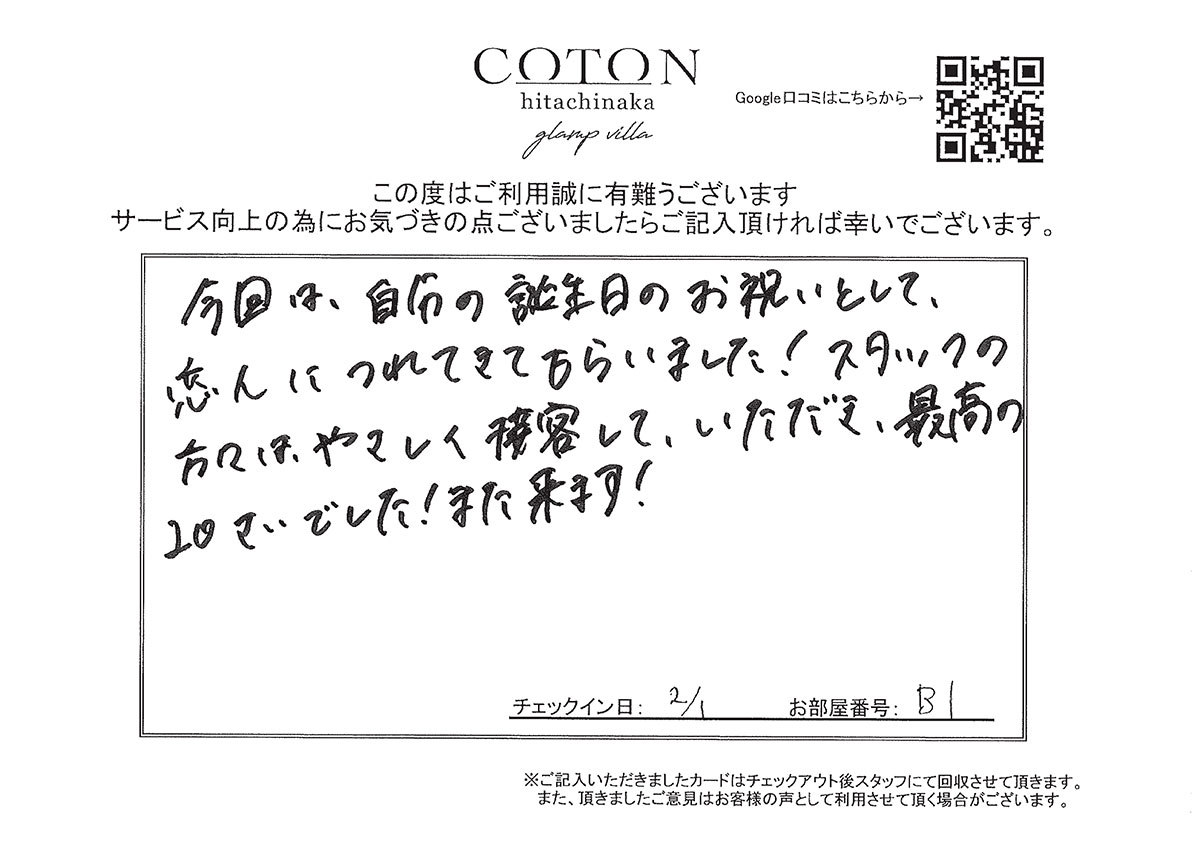 COTON
hitachinaka
glamp villa
Google口コミはこちらから→
この度はご利用誠に有難うございます
サービス向上の為にお気づきの点ございましたらご記入頂ければ幸いでございます。
今回は、自分の誕生日のお祝いとして、
恋人につれてきてもらいました！スタッフの
方々は、やさしく接客して、いただき、最高の
20さいでした！また来ます！
チェックイン日: 2/1 お部屋番号: B1
※ご記入いただきましたカードはチェックアウト後スタッフにて回収させて頂きます。
また、頂きましたご意見はお客様の声として利用させて頂く場合がございます。